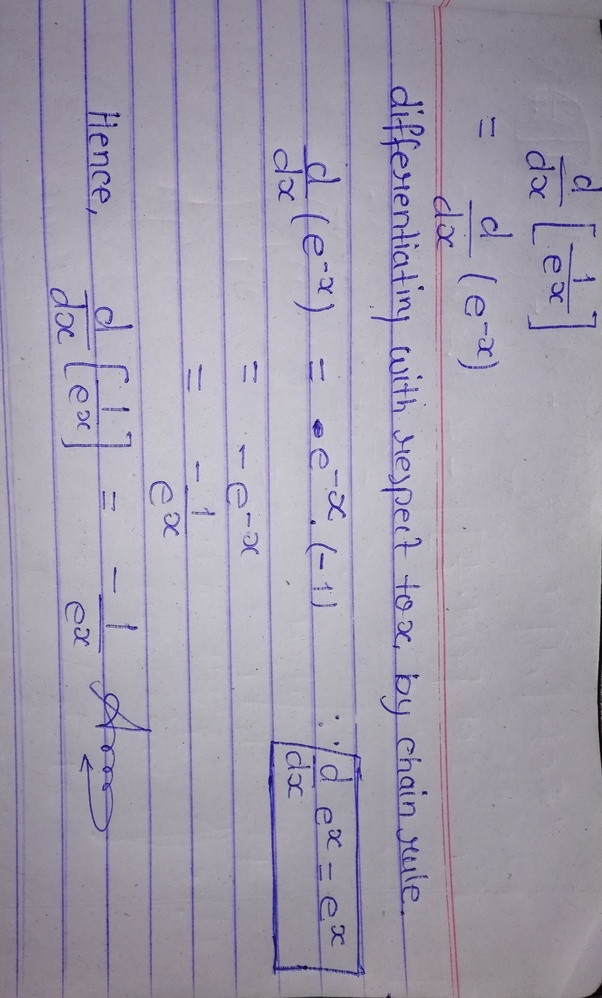 d/dx [1/e^x]
= d/dx (e^-x)
differentiating with respect to x, by chain rule.
d/dx (e^-x) = e^-x . (-1) ∵ d/dx e^x = e^x
= -e^-x
= -1/e^x
Hence, d/dx [1/e^x] = -1/e^x